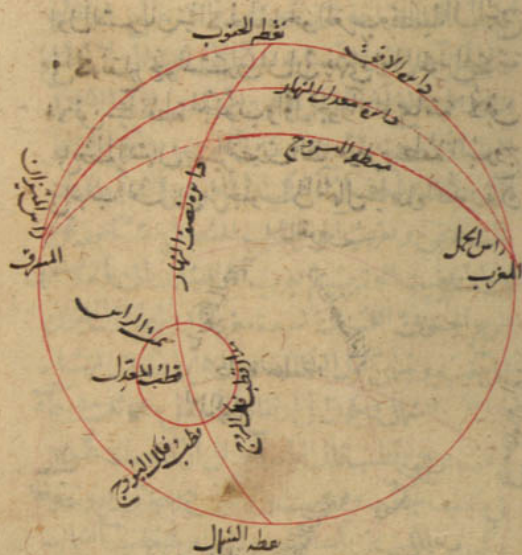 نقطه الجنوب
دايره الافق
دايرة معدل النهار
منطقه البروج
دايره نصف النهار
راس الميزان
المشرق
راس الحمل
المغرب
سمت الراس
قطب المعدل
مدار قطب فلك البروج
قطب فلك البروج
نقطه الشمال